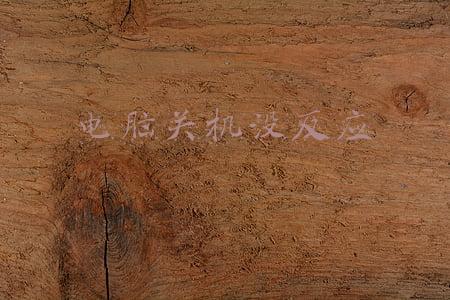 电脑关机没反应